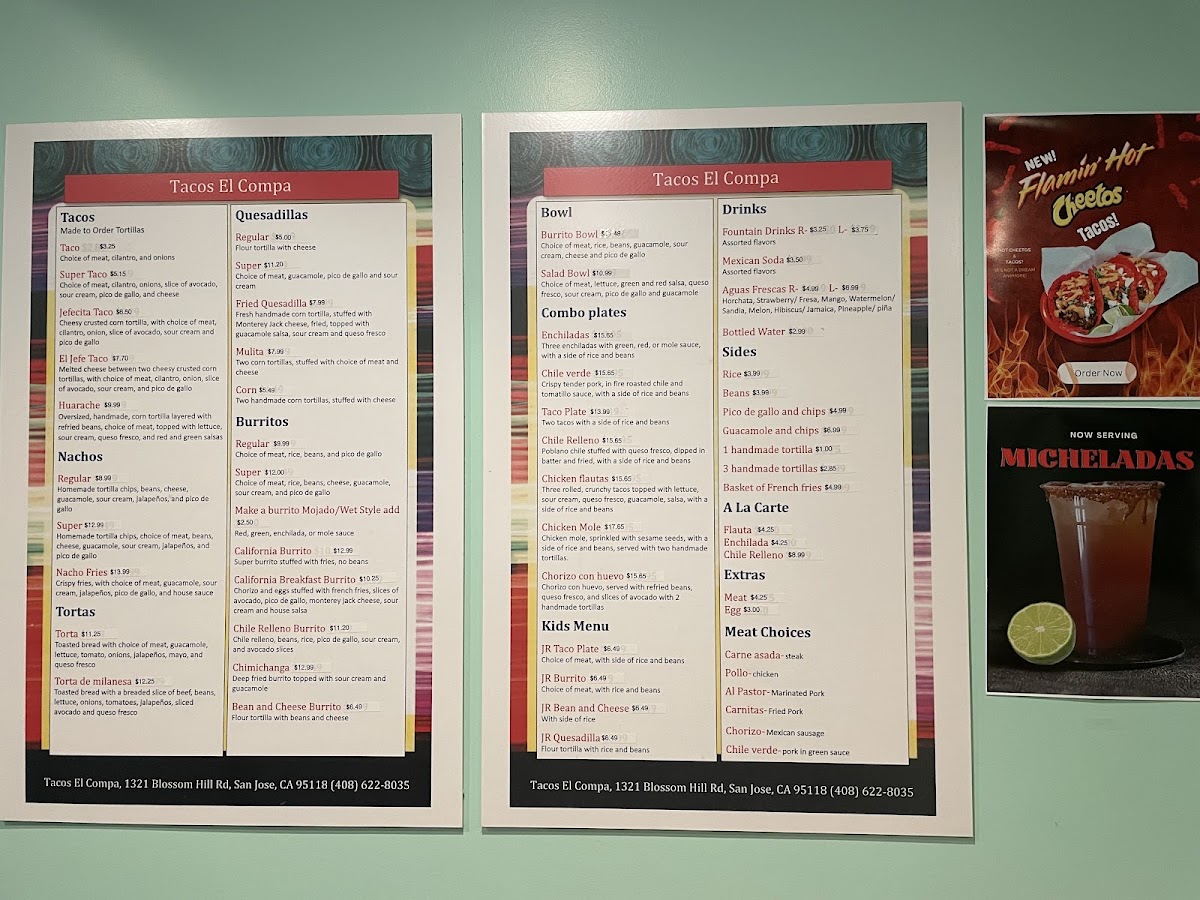 Tacos El Compa
Tacos
Made to Order Tortillas
Taco $3.25
Choice of meat, cilantro, and onions
Super Taco $5.15
Choice of meat, cilantro, onions, slice of avocado,
sour cream, pico de gallo, and cheese
Jefecita Taco $6.50
Cheesy crusted corn tortilla, with choice of meat,
cilantro, onion, slice of avocado, sour cream and
pico de gallo
El Jefe Taco $7.70
Melted cheese between two cheesy crusted corn
tortillas, with choice of meat, cilantro, onion, slice
of avocado, sour cream, and pico de gallo
Huarache $9.99
Oversized, handmade, corn tortilla layered with
refried beans, choice of meat, topped with lettuce,
sour cream, queso fresco, and red and green salsas
Nachos
Regular $8.99
Homemade tortilla chips, beans, cheese,
guacamole, sour cream, jalapeños, and pico de
gallo
Super $12.99
Homemade tortilla chips, choice of meat, beans,
cheese, guacamole, sour cream, jalapeños, and
pico de gallo
Nacho Fries $13.99
Crispy fries, with choice of meat, guacamole, sour
cream, jalapeños, pico de gallo, and house sauce
Tortas
Torta $11.25
Toasted bread with choice of meat, guacamole,
lettuce, tomato, onions, jalapeños, mayo, and
queso fresco
Torta de milanesa $12.25
Toasted bread with a breaded slice of beef, beans,
lettuce, onions, tomatoes, jalapeños, sliced
avocado and queso fresco
Quesadillas
Regular $5.00
Flour tortilla with cheese
Super $11.20
Choice of meat, guacamole, pico de gallo and sour
cream
Fried Quesadilla $7.99
Fresh handmade corn tortilla, stuffed with
Monterey Jack cheese, fried, topped with
guacamole salsa, sour cream and queso fresco
Mulita $7.99
Two corn tortillas, stuffed with choice of meat and
cheese
Corn $5.49
Two handmade corn tortillas, stuffed with cheese
Burritos
Regular $9.99
Choice of meat, rice, beans, and pico de gallo
Super $12.00
Choice of meat, rice, beans, cheese, guacamole,
sour cream, and pico de gallo
Make a burrito Mojado/Wet Style add
$2.50
Red, green, enchilada, or mole sauce
California Burrito $12.99
Super burrito stuffed with fries, no beans
California Breakfast Burrito $10.25
Chorizo and eggs stuffed with french fries, slices of
avocado, pico de gallo, monterey jack cheese, sour
cream and house salsa
Chile Relleno Burrito $11.20
Chile relleno, beans, rice, pico de gallo, sour cream,
and avocado slices
Chimichanga $12.99
Deep fried burrito topped with sour cream and
guacamole
Bean and Cheese Burrito $6.49
Flour tortilla with beans and cheese
Tacos El Compa, 1321 Blossom Hill Rd, San Jose, CA 95118 (408) 622-8035
Tacos El Compa
Bowl
Burrito Bowl
Choice of meat, rice, beans, guacamole, sour
cream, cheese and pico de gallo
Salad Bowl $10.99
Choice of meat, lettuce, green and red salsa, queso
fresco, sour cream, pico de gallo and guacamole
Combo plates
Enchiladas $15.65
Three enchiladas with green, red, or mole sauce,
with a side of rice and beans
Chile verde $15.65
Crispy tender pork, in fire roasted chile and
tomatillo sauce, with a side of rice and beans
Taco Plate $13.99
Two tacos with a side of rice and beans
Chile Relleno $15.65
Poblano chile stuffed with queso fresco, dipped in
batter and fried, with a side of rice and beans
Chicken flautas $15.65
Three rolled, crunchy tacos topped with lettuce,
sour cream, queso fresco, guacamole, salsa, with a
side of rice and beans
Chicken Mole $17.65
Chicken mole, sprinkled with sesame seeds, with a
side of rice and beans, served with two handmade
tortillas.
Chorizo con huevo $15.65
Chorizo con huevo, served with refried beans,
queso fresco, and slices of avocado with 2
handmade tortillas
Kids Menu
JR Taco Plate $6.49
Choice of meat, with side of rice and beans
JR Burrito $6.49
Choice of meat, with rice and beans
JR Bean and Cheese $6.49
With side of rice
JR Quesadilla $6.49
Flour tortilla with rice and beans
Drinks
Fountain Drinks R- $3.25 L- $3.75
Assorted flavors
Mexican Soda $3.50
Assorted flavors
Aguas Frescas R- $4.99 L- $6.99
Horchata, Strawberry/ Fresa, Mango, Watermelon/
Sandia, Melon, Hibiscus/ Jamaica, Pineapple/ piña
Bottled Water $2.99
Sides
Rice $3.99
Beans $3.99
Pico de gallo and chips $4.99
Guacamole and chips $6.99
1 handmade tortilla $1.00
3 handmade tortillas $2.85
Basket of French fries $4.99
A La Carte
Flauta $4.25
Enchilada $4.25
Chile Relleno $8.99
Extras
Meat $4.25
Egg $3.00
Meat Choices
Carne asada- steak
Pollo- chicken
Al Pastor- Marinated Pork
Carnitas- Fried Pork
Chorizo- Mexican sausage
Chile verde- pork in green sauce
Tacos El Compa, 1321 Blossom Hill Rd, San Jose, CA 95118 (408) 622-8035
NEW!
Flamin' Hot
Cheetos
Tacos!
HOT CHEETOS
&
TACOS?
Order Now
NOW SERVING
MICHELADAS